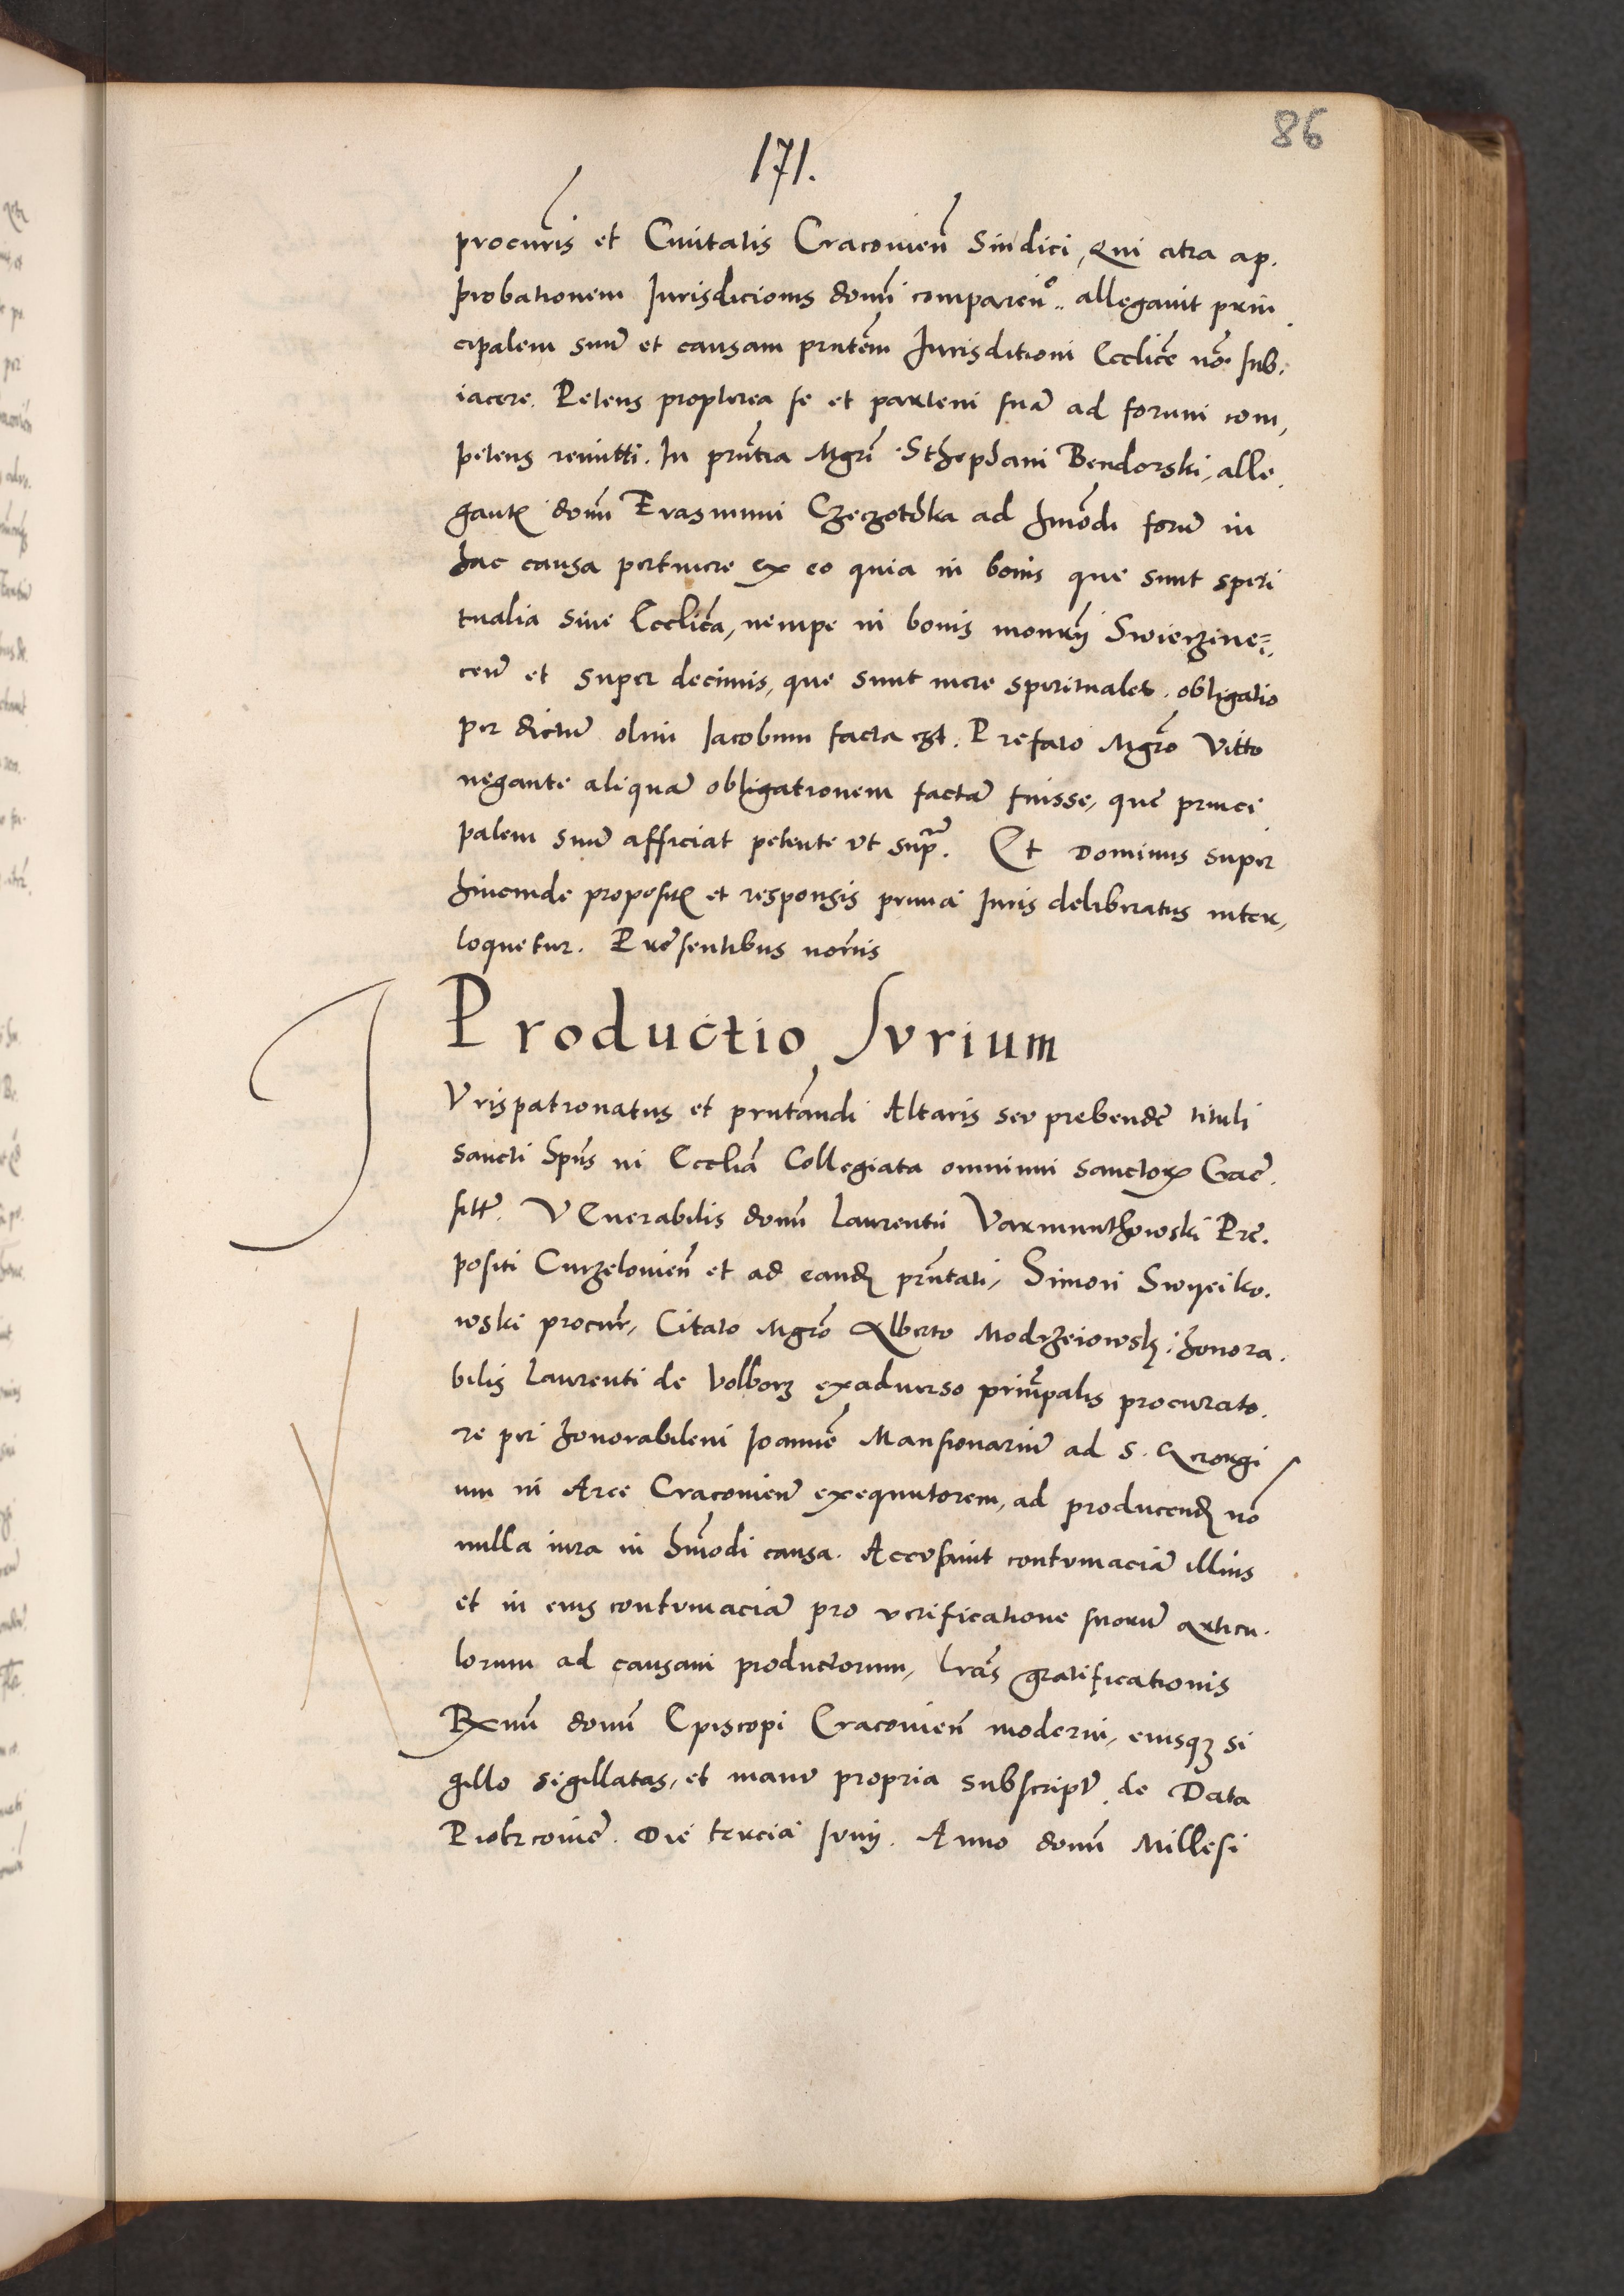 86
171.
procuris et Ciuitatis Cracouien̄ Sindici, Qui citra ap.
probationem Jurisdicionis domī comparen̄. allegauit prin
cipalem suū et causam pn̄tem Jurisditioni Eccl̄ice nō sub.
iacere. Petens propterea se et partem suā ad forum com,
petens remitti. In pn̄tia Mgrī Sthephani Bendorski, alle.
gantꝭ domī Erasmum Czeczothka ad hm̄odi forū in
hac causa pertinere ex eo quia in bonis que sunt spiri
tualia siue Eccl̄ica, nempe in bonis monrij Swierzine=
cen̄ et super decimis, que sunt mere spirituales. obligatio
per dictū olim Jacobum facta est. Prefato Mgrō Vitto
negante aliquā obligationem factā fuisse, que princi
palem suū afficiat petente vt sup̄. Et Dominus super
hincinde propositꝭ et responsis primā Juris deliberatus inter,
loquetur. Presentibus nōriis
Productio Jvrium
J
Vrispatronatus et pn̄tandi Altaris seu prebendę tituli
sancti Spūs in Eccl̄ia Collegiata omnium sanctorꝝ Crac̄.
sitꝭ. VEnerabilis domī Laurentii Varmunthowski Pre.
positi Curzelouien̄ et ad eandꝭ pn̄tati, Simon Swyeiko.
wski procur̄, Citato Mgrō Alberto Modrzeiowskꝭ honora.
bilis Laurenti de Volborz exaduerso principalis procurato.
re per honorabilem Joannē Mansionariū ad S. Georgi
um in Arce Cracouien̄ exequutorem, ad producendꝭ nō
nulla iura in hm̄odi causa. Accusauit contumaciā illius
et in eius contumaciā pro verificatione suorū articu.
lorum ad causam productorum, lrās gratificationis
Rx̄mī domī Episcopi Cracouien̄ moderni, eiusqꝫ si
gillo sigillatas, et manu propria subscriptꝭ, de Data
Piotrcouie̅. Die tercia Junij. Anno domī Millesi